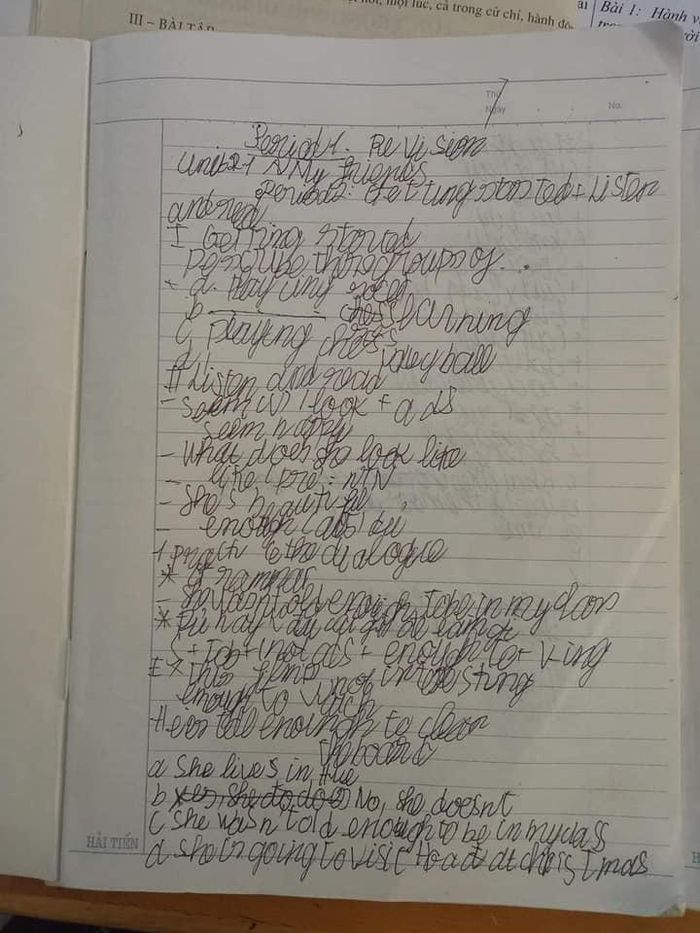 III – BÀI TẬP
mọi lúc, cả trong cử chỉ, hành độ
Bài 1: Hành v
Thứ
Ngày
No.
Period 1. Revision
Unit 1 My friends
Period 2: Getting started + Listen
and read
I Getting started
Describe these groups of...
+ a. Playing
b learning
c, playing chess
d volleyball
II Listen and read
- Seem (v) look + ads
Seem happy
- What does she look like
- like (pre) = N
- She's beautiful
- enough (ads) đủ
1 Practi the dialogue
* Grammar
- She wasn't old enough to be in my class
* để làm gì
S + Tob + (not ads + enough to + V-ing
* This not interesting
enough to
He is tall enough to clean
the board
a She lives in Hue
b No, she doesn't
c she wasn't old enough to be in my class
d she is going to visit at christmas
HẢI TIẾN